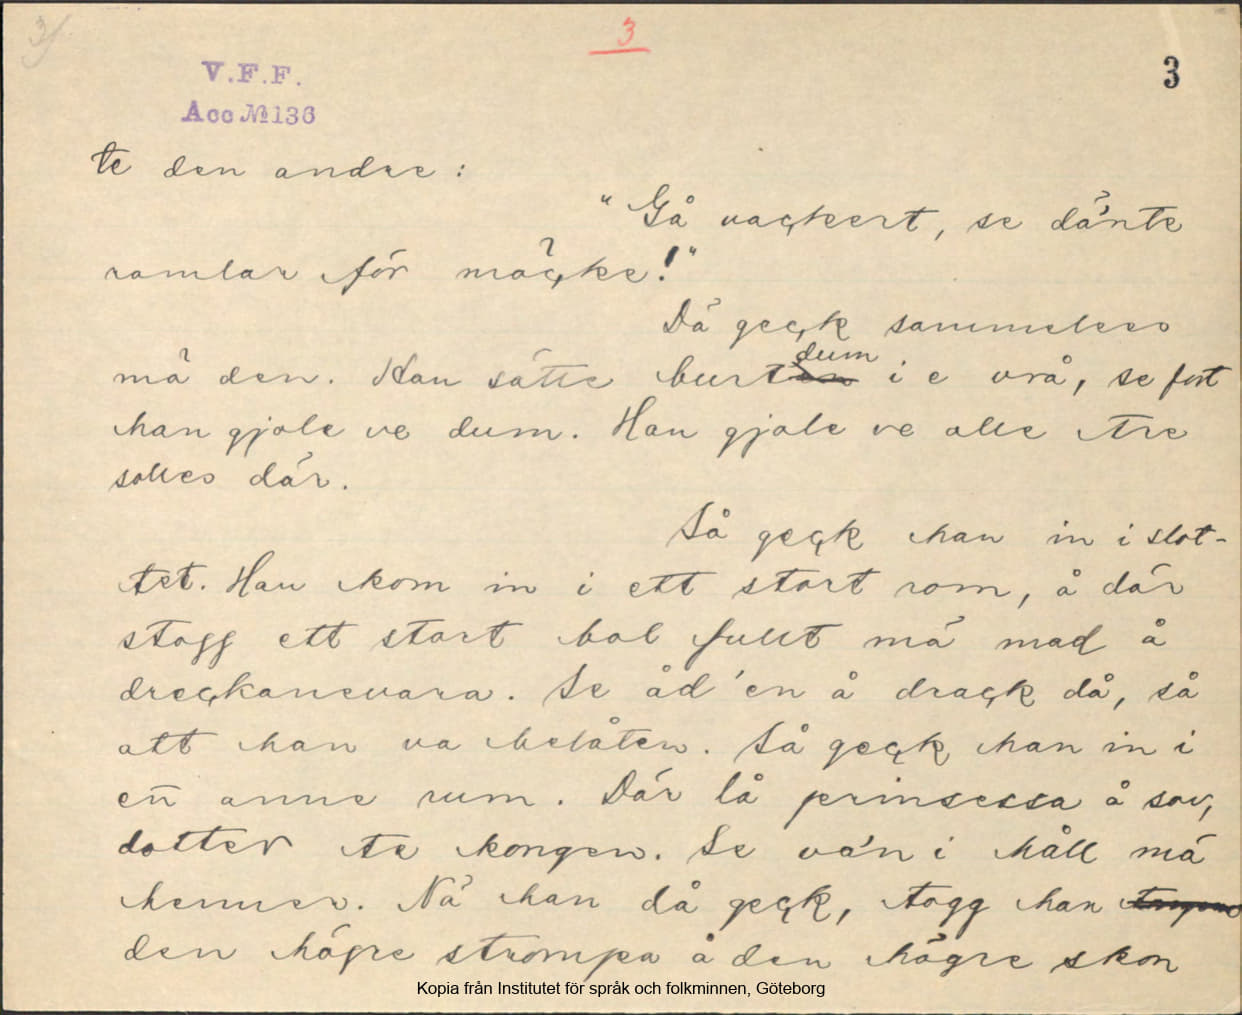 3/
3
3
V.F.F.
Acc № 136
te den andre:
"Gå vaçkert, se dä'nte
ramlar för möçke!"
Dä geçk sammelees
mä den. Han sätte burt dum i e vrå, se fort
han gjole ve dum. Han gjole ve alle tre
solles där.
Så geçk han in i slot-
tet. Han kom in i ett stort rom, å där
stogg ett stort bol fullt mä mad å
dreçkanevara. Se åd'en å draçk då, så
att han va belåten. Så geçk han in i
en̄ anne rum. Där lå prinsessa å sov,
dotter te kongen. Se va'n i håll mä
henner. Nä han då geçk, togg han
den högre strompa å den högre skon
Kopia från Institutet för språk och folkminnen, Göteborg